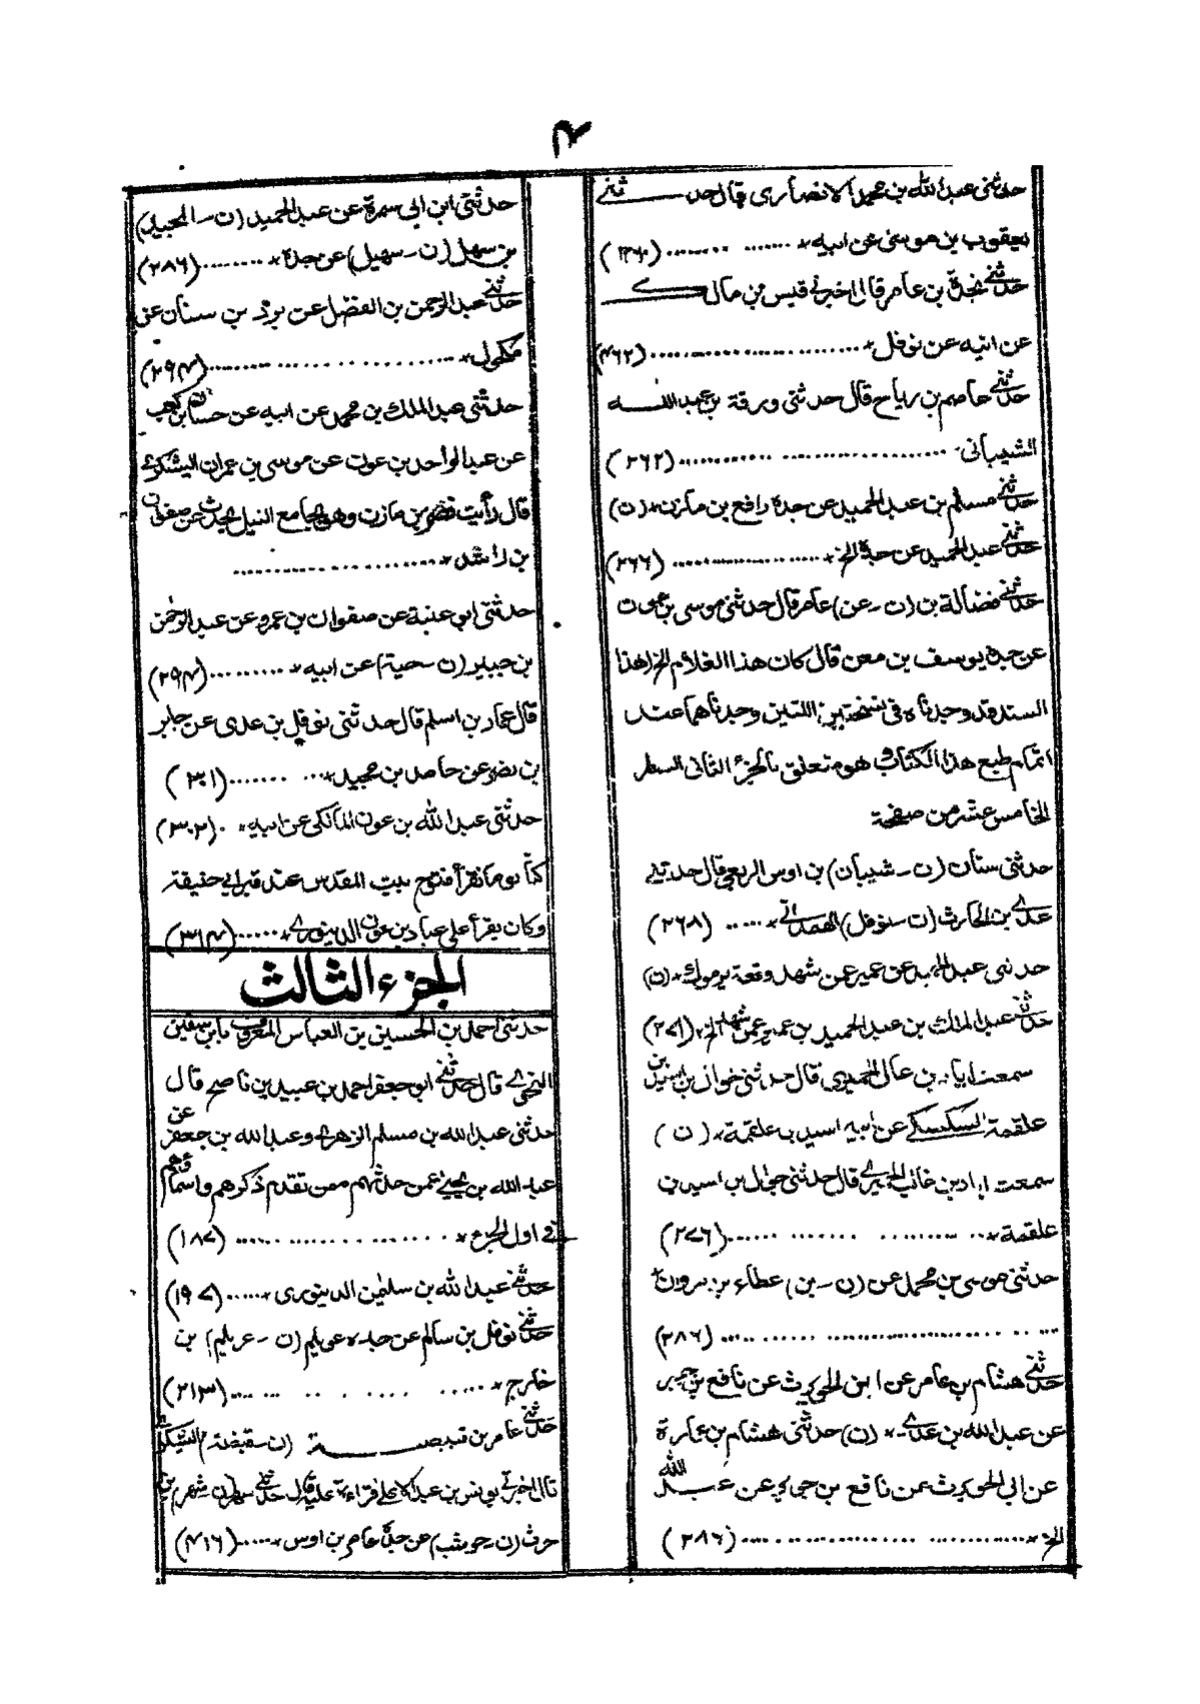 ٤
حدثنى عبد الله بن محمد الانصارى قال حدثنى
يعقوب بن موسى عن ابيه * ...... (١٣٦٠)
حدثنى نجدة بن عامر قال اخبرنى قيس بن مالك
عن ابيه عن نوفل * ...... (٤٦٢)
حدثنى عاصم بن رياح قال حدثنى ورقة بن عبد الله
الشيبانى ...... (٢٦٢)
حدثنى مسلم بن عبد الحميد عن جده رافع بن مازن * (ن)
حدثنى عبد الحميد عن جده الخ * ...... (٢٦٦)
حدثنى فضالة بن (ن - عن) عامر قال حدثنى موسى بن عوت
عن جده يوسف بن معن قال كان هذا الغلام الخ (هذا
السند قد وجدناه فى نسختين اللتين وجدناهما عند
اتمام طبع هذا الكتاب وهو متعلق بالجزء الثانى السطر
الخامس عشر من صفحة
حدثنى سنان (ن - شيبان) بن اوس الربعى قال حدثنى
عدى بن الحارث (ن - نوفل) الهمدانى * ..... (٢٦٨)
حدثنى عبد الحميد عن عمير عمن شهد وقعة يرموك * (ن)
حدثنى عبد الملك بن عبد الحميد بن عمير عمن شهد الخ * (٢٧١)
سمعت اياد بن عال الحميرى قال حدثنى خوال بن اسيد بن
علقمة السكسكى عن ابيه اسيد بن علقمة * (ن)
سمعت اياد بن غانب الحميرى قال حدثنى جوال بن اسيد بن
علقمة * ...... (٢٧٦)
حدثنى موسى بن محمد عن (ن - بن) عطاء بن مروان *
...... (٢٨٦)
حدثنى هشام بن عامر عن ابن الحويرث عن نافع بن جبير
عن عبد الله بن عدى - * (ن) حدثنى هشام بن عمارة
عن ابى الحويرث عمن نافع بن جبير عن عبد الله
الخ * ...... (٢٨٦)
حدثنى ابن ابى سمرة عن عبد الحميد (ن - الجميل)
بن سهل (ن - سهيل) عن جده * ...... (٢٨٦)
حدثنى عبد الرحمن بن الفضل عن برد بن سنان عن
مكحول * ...... (٢٩٤)
حدثنى عبد الملك بن محمد عن ابيه عن حسان بن كعب
عن عبد الواحد بن عوت عن موسى بن عمران اليشكرى
قال رأيت نضر بن مازن وهو بجامع النيل يحدث عن صفوان
بن راشد * ......
حدثنى ابو عنبة عن صفوان بن عمرو عن عبد الرحمن
بن جبير (ن - حية) عن ابيه * ...... (٢٩٤)
قال عماد بن اسلم قال حدثنى نوفل بن عدى عن جابر
بن نضر عن حامد بن مجيد * ...... (٣٠١)
حدثنى عبد الله بن عون المالكى عن ابيه * . (٣٠٢)
كنا يوما نقرأ فتوح بيت المقدس عند قبر ابى حنيفة
وكان يقرأ على عباد بن عوف الدينورى * ..... (٣١٤)
الجزء الثالث
حدثنى احمد بن الحسين بن العباس المعروف بابن سفين
النحوى قال حدثنى ابو جعفر احمد بن عبيد بن ناصح قال
حدثنى عبد الله بن مسلم الزهرى وعبد الله بن جعفر عن
عبد الله بن يحيى عمن حدثهم ممن تقدم ذكرهم واسماؤهم
فى اول الجزء * ...... (١٨٧)
حدثنى عبد الله بن سليمن الدينورى * ..... (١٩٧)
حدثنى نوفل بن سالم عن جده عويلم (ن - عريلم) بن
خارج * ...... (٢١٣)
حدثنى عامر بن قبيصة (ن - قبضة) اليشكرى
قال اخبرنى يونس بن عبد الاعلى قراءة عليه قال حدثنى سهل بن شهرم بن
حرث (ن - حويشب) عن جده عامر بن اوس * ..... (٤١٦)